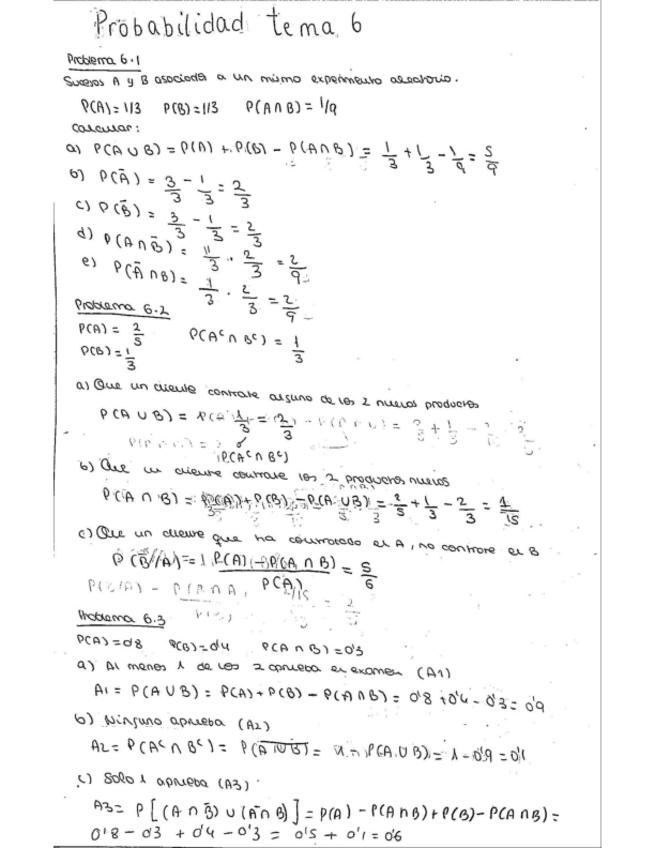 Probabilidad tema 6
Problema 6.1
Sucesos A y B asociados a un mismo experimento aleatorio.
P(A)=1/3 P(B)=1/3 P(A∩B)=1/9
Calcular:
a) P(A∪B) = P(A) + P(B) - P(A∩B) = 1/3 + 1/3 - 1/9 = 5/9
b) P(Ā) = 3/3 - 1/3 = 2/3
c) P(B̄) = 3/3 - 1/3 = 2/3
d) P(A∩B̄) = 1/3 · 2/3 = 2/9
e) P(Ā∩B) = 1/3 · 2/3 = 2/9
Problema 6.2
P(A) = 2/5 P(Aᶜ∩Bᶜ) = 1/3
P(B) = 1/3
a) Que un cliente contrate alguno de los 2 nuevos productos
P(A∪B) = 1/3 = 2/3
P(Aᶜ∩Bᶜ)
b) Que un cliente contrate los 2 productos nuevos
P(A∩B) = P(A)+P(B)-P(A∪B) = 2/5 + 1/3 - 2/3 = 1/15
c) Que un cliente que ha contratado el A, no contrate el B
P(B̄/A) = P(A)-P(A∩B) / P(A) = 5/6
Problema 6.3
P(A)=0'8 P(B)=0'4 P(A∩B)=0'3
a) Al menos 1 de los 2 aprueba el examen (A1)
A1 = P(A∪B) = P(A)+P(B)-P(A∩B) = 0'8+0'4-0'3=0'9
b) Ninguno aprueba (A2)
A2 = P(Aᶜ∩Bᶜ) = P(A∪B)‾ = 1 - P(A∪B) = 1-0'9=0'1
c) Solo 1 aprueba (A3)
A3 = P[(A∩B̄)∪(Ā∩B)] = P(A) - P(A∩B) + P(B) - P(A∩B) =
0'8-0'3+0'4-0'3 = 0'5+0'1=0'6